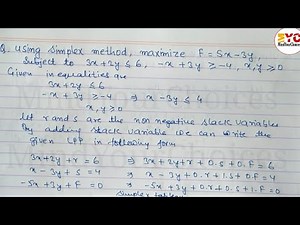 Q. Using Simplex method, maximize F = 5x - 3y,
Subject to 3x + 2y ≤ 6, -x + 3y ≥ -4, x, y ≥ 0
Given in equalities are
3x + 2y ≤ 6
-x + 3y ≥ -4 ⇒ x - 3y ≤ 4
x, y ≥ 0
Let r and s are the non negative slack variables
By adding slack variable we can write the
given LPP in following form
3x + 2y + r = 6 ⇒ 3x + 2y + r + 0.s + 0.F = 6
x - 3y + s = 4 ⇒ x - 3y + 0.r + 1.s + 0.F = 4
-5x + 3y + F = 0 ⇒ -5x + 3y + 0.r + 0.s + 1.F = 0